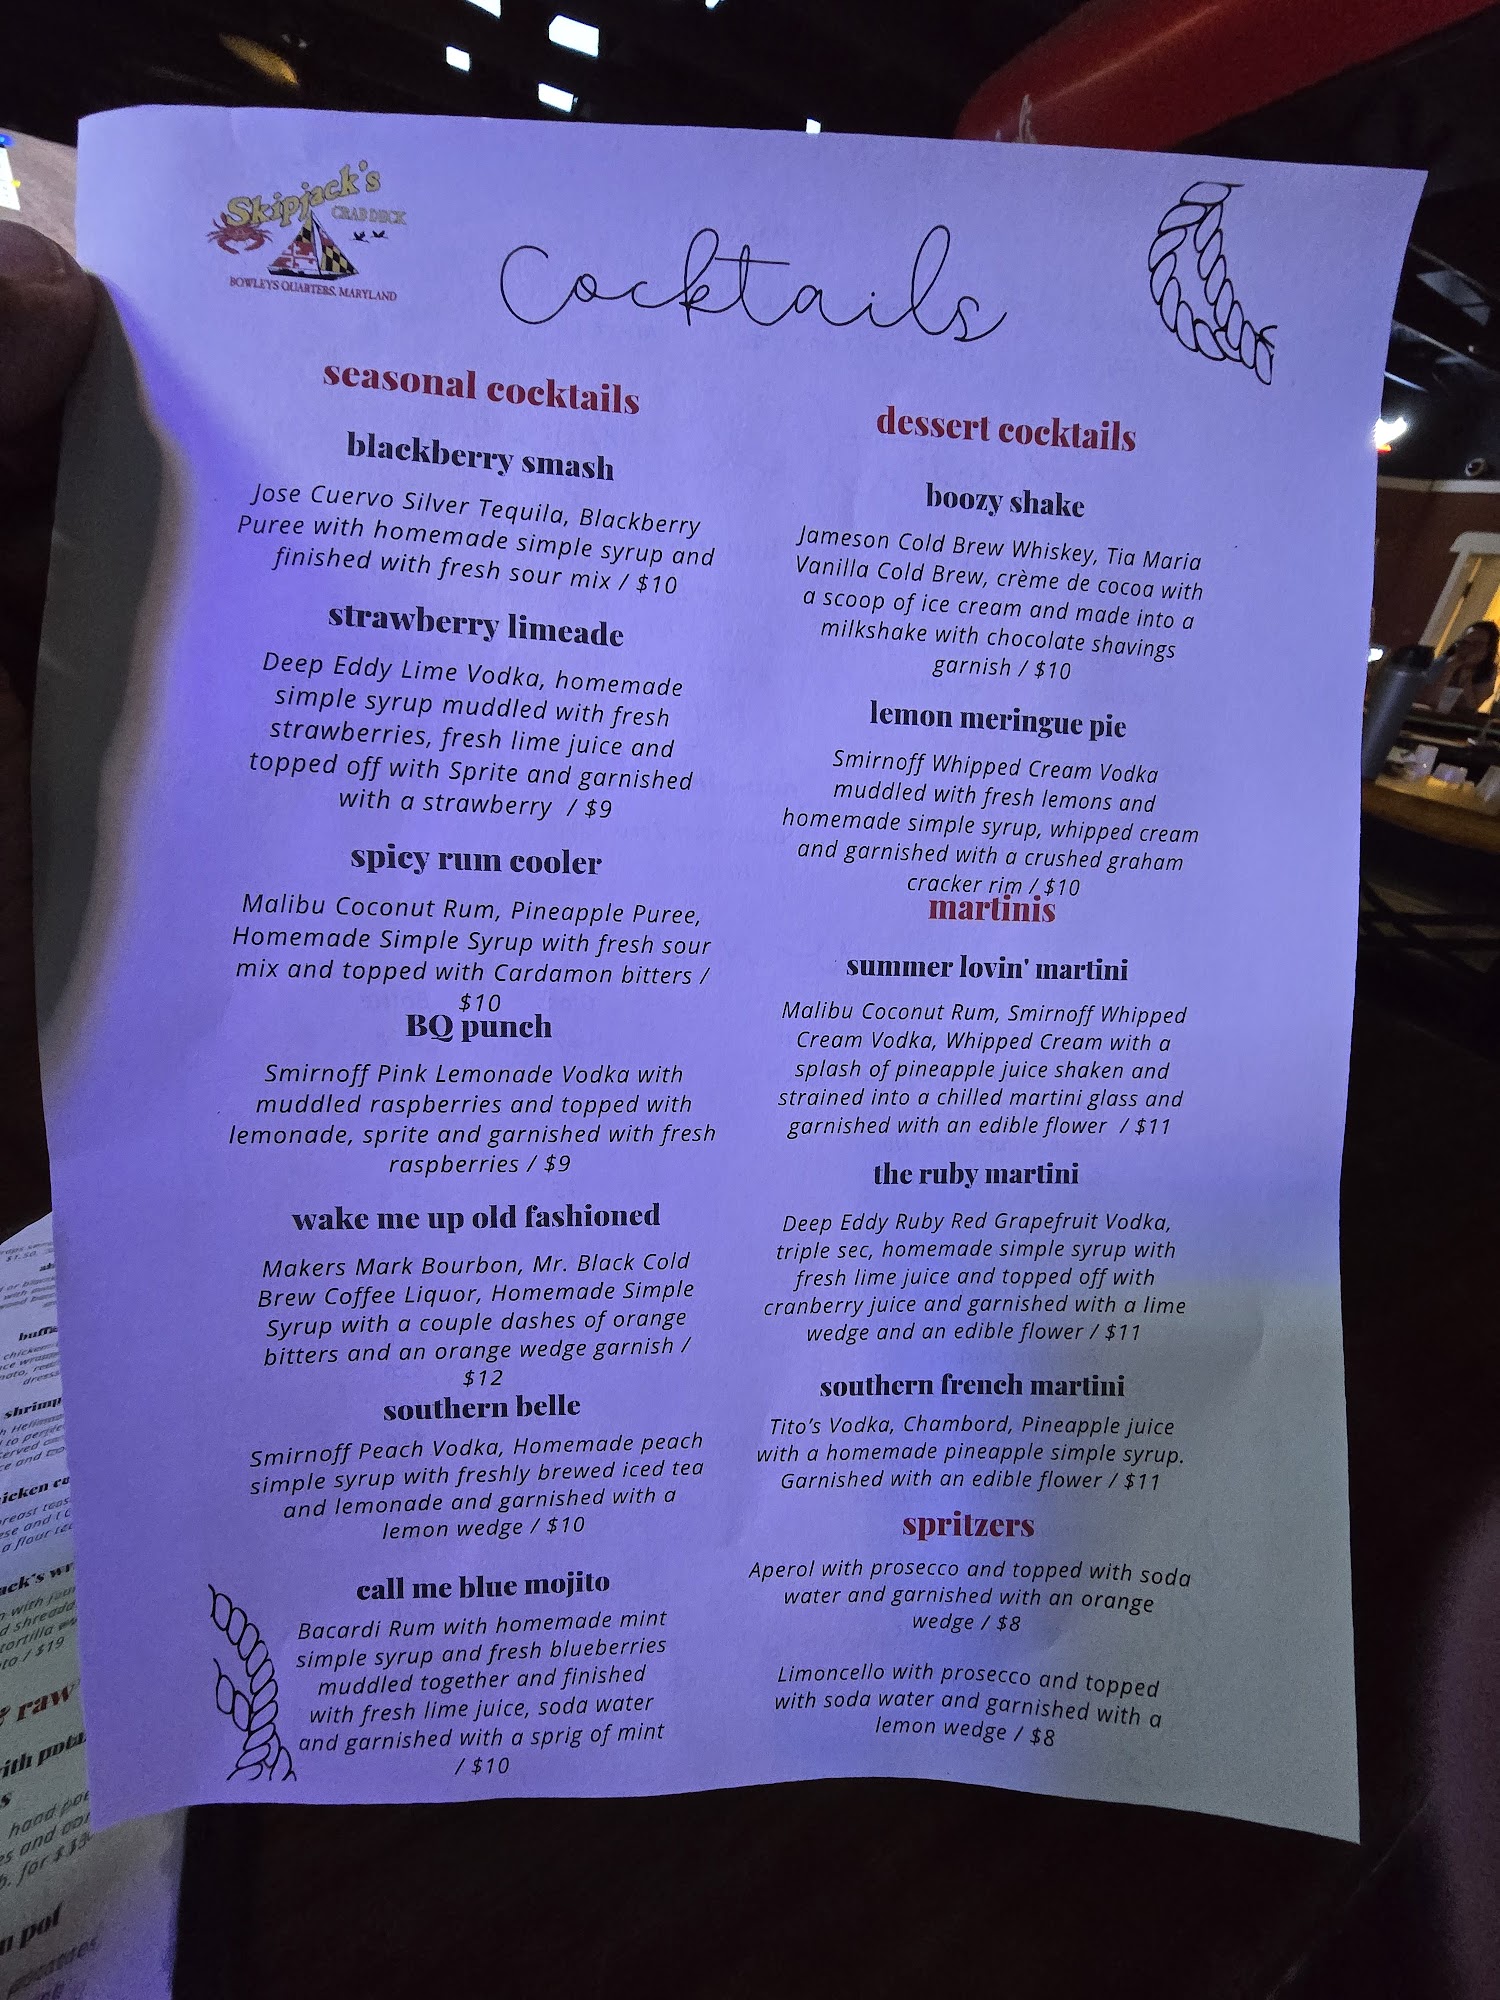 Skipjack's
CRAB DECK
BOWLEYS QUARTERS, MARYLAND
Cocktails
seasonal cocktails
blackberry smash
Jose Cuervo Silver Tequila, Blackberry
Puree with homemade simple syrup and
finished with fresh sour mix / $10
strawberry limeade
Deep Eddy Lime Vodka, homemade
simple syrup muddled with fresh
strawberries, fresh lime juice and
topped off with Sprite and garnished
with a strawberry / $9
spicy rum cooler
Malibu Coconut Rum, Pineapple Puree,
Homemade Simple Syrup with fresh sour
mix and topped with Cardamon bitters /
$10
BQ punch
Smirnoff Pink Lemonade Vodka with
muddled raspberries and topped with
lemonade, sprite and garnished with fresh
raspberries / $9
wake me up old fashioned
Makers Mark Bourbon, Mr. Black Cold
Brew Coffee Liquor, Homemade Simple
Syrup with a couple dashes of orange
bitters and an orange wedge garnish /
$12
southern belle
Smirnoff Peach Vodka, Homemade peach
simple syrup with freshly brewed iced tea
and lemonade and garnished with a
lemon wedge / $10
call me blue mojito
Bacardi Rum with homemade mint
simple syrup and fresh blueberries
muddled together and finished
with fresh lime juice, soda water
and garnished with a sprig of mint
/ $10
dessert cocktails
boozy shake
Jameson Cold Brew Whiskey, Tia Maria
Vanilla Cold Brew, crème de cocoa with
a scoop of ice cream and made into a
milkshake with chocolate shavings
garnish / $10
lemon meringue pie
Smirnoff Whipped Cream Vodka
muddled with fresh lemons and
homemade simple syrup, whipped cream
and garnished with a crushed graham
cracker rim / $10
martinis
summer lovin' martini
Malibu Coconut Rum, Smirnoff Whipped
Cream Vodka, Whipped Cream with a
splash of pineapple juice shaken and
strained into a chilled martini glass and
garnished with an edible flower / $11
the ruby martini
Deep Eddy Ruby Red Grapefruit Vodka,
triple sec, homemade simple syrup with
fresh lime juice and topped off with
cranberry juice and garnished with a lime
wedge and an edible flower / $11
southern french martini
Tito's Vodka, Chambord, Pineapple juice
with a homemade pineapple simple syrup.
Garnished with an edible flower / $11
spritzers
Aperol with prosecco and topped with soda
water and garnished with an orange
wedge / $8
Limoncello with prosecco and topped
with soda water and garnished with a
lemon wedge / $8
$1.50
shrimp
served
with
tortilla
/ $19
& raw
hand
and
for
pot